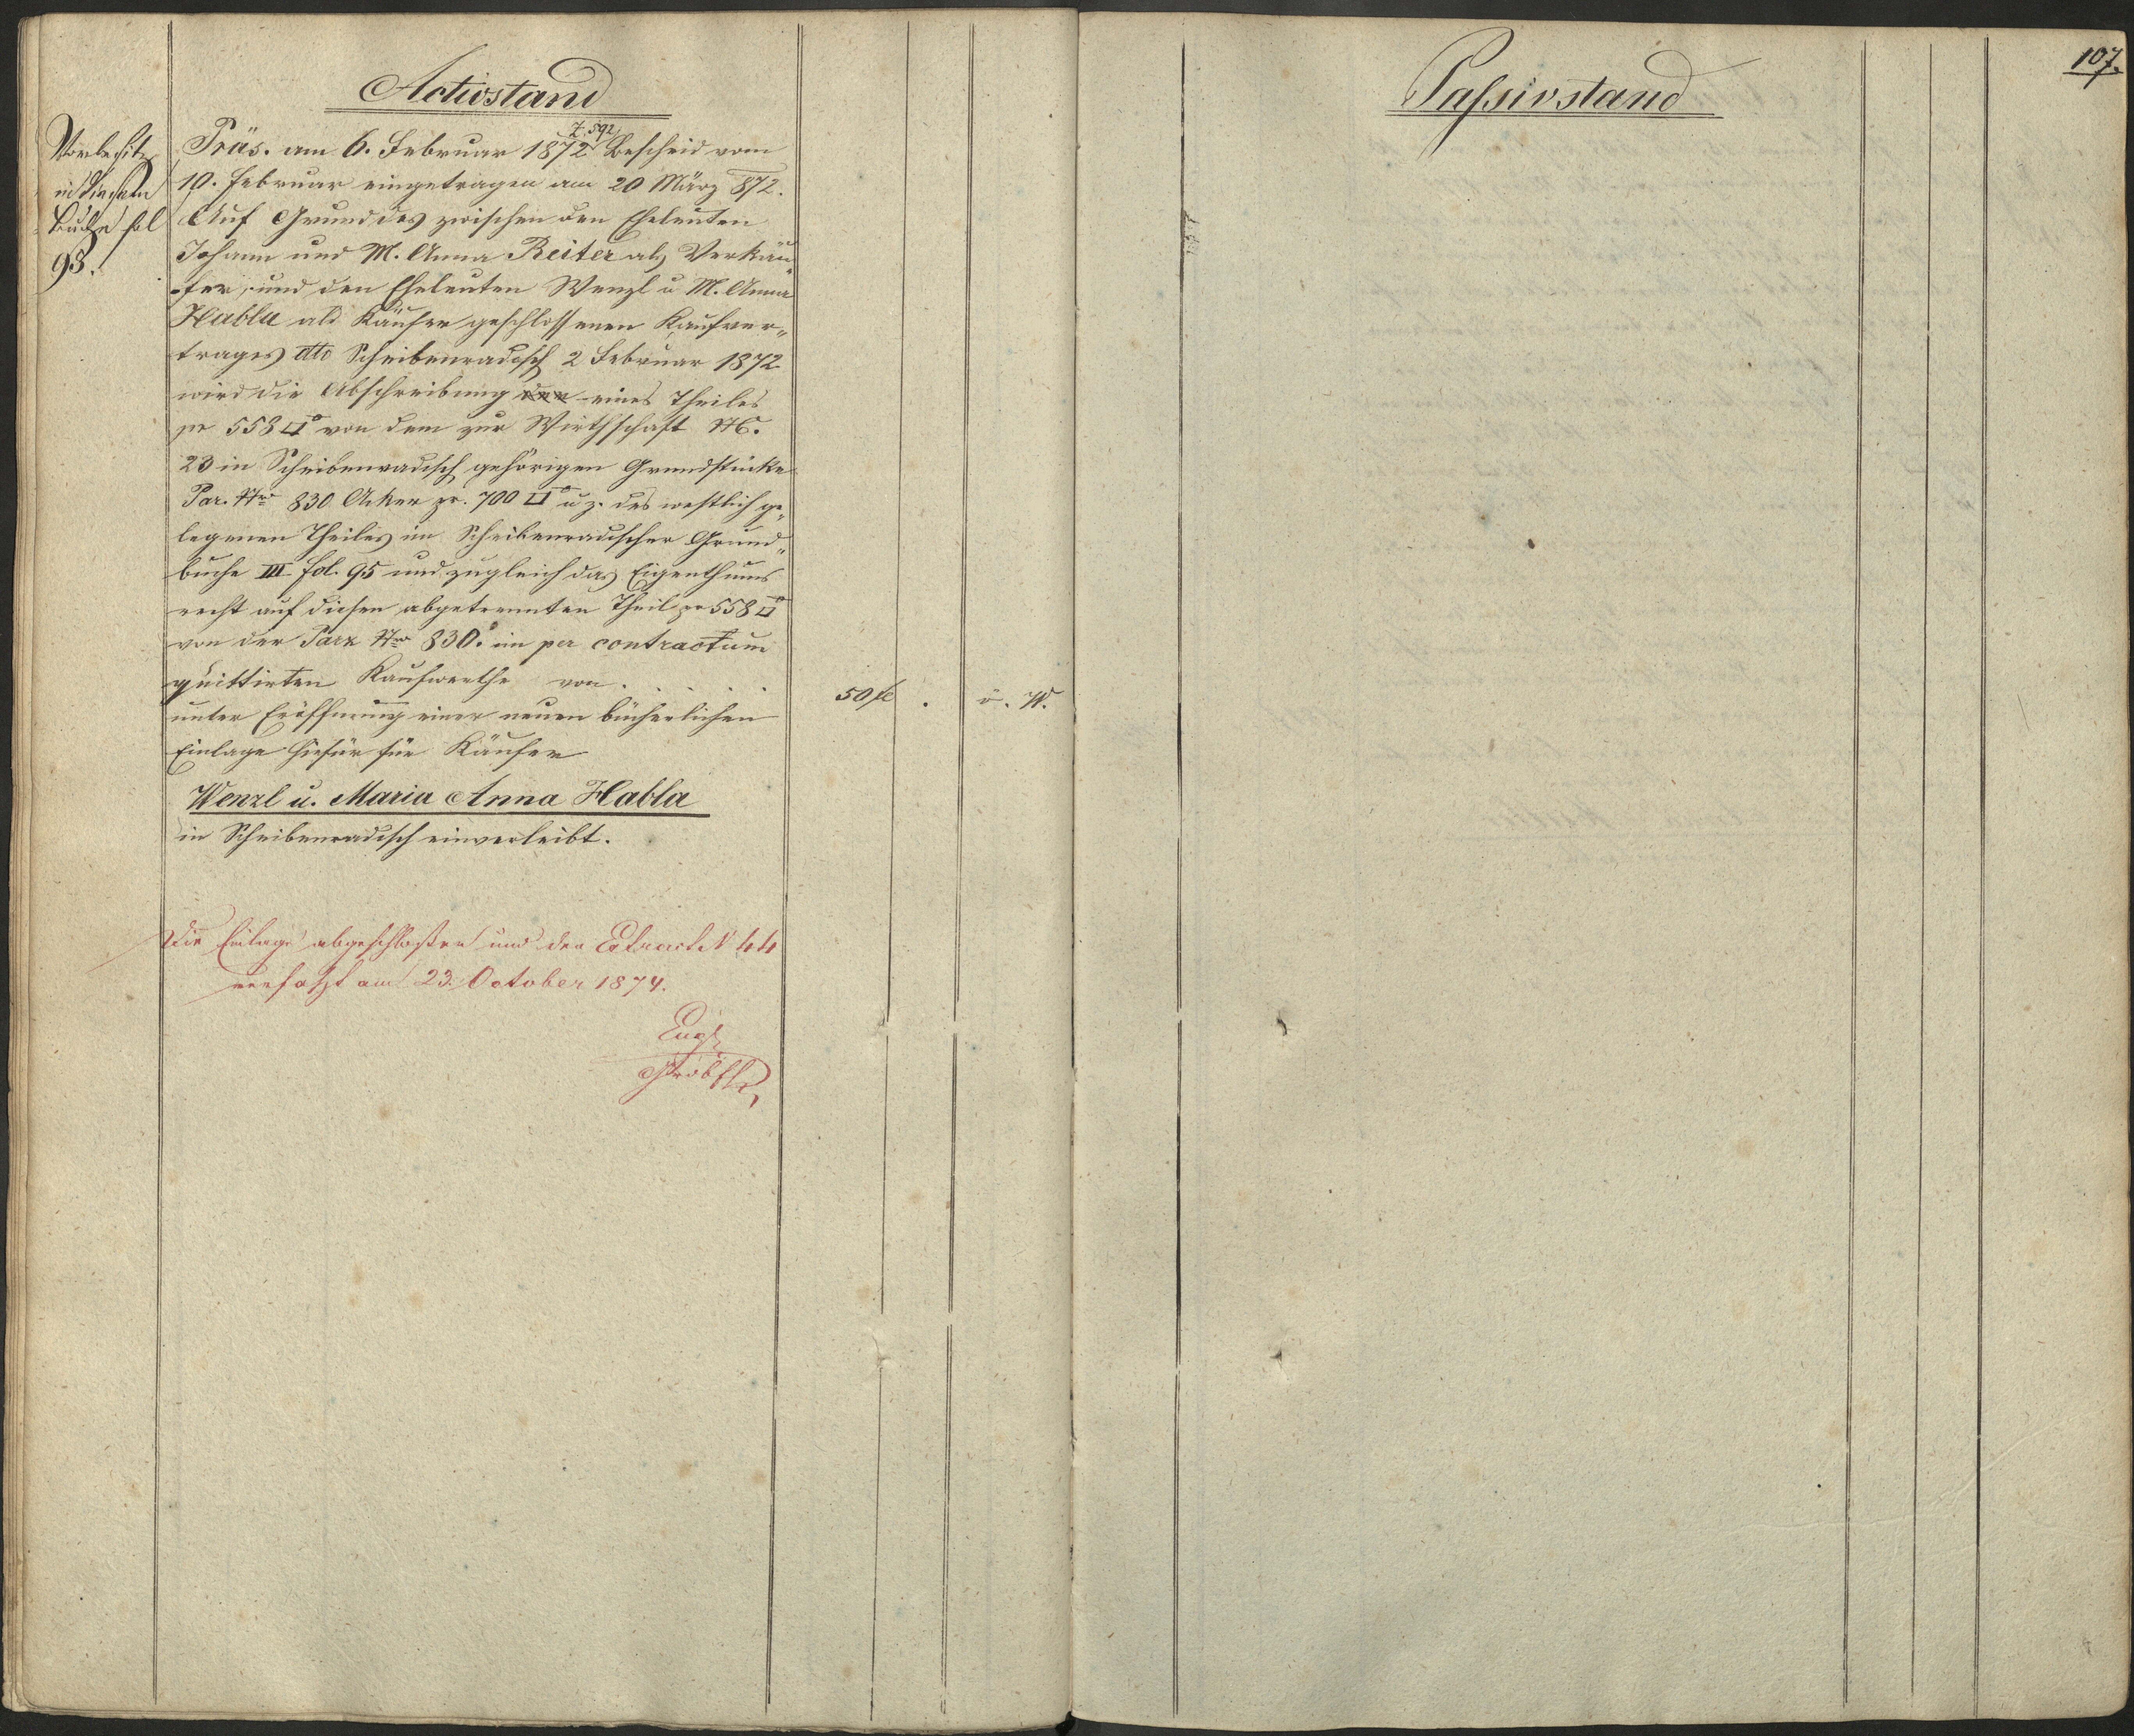 Activstand
Vorbesitz
in diesem
Buche fol
93.
Z. 592
Präs. am 6. Februar 1872 Bescheid vom
10. Februar eingetragen am 20 März 872.
Auf Grund des zwischen den Eheleuten
Johann und M. Anna Reiter als Verkäu
fer, und den Eheleuten Wenzl u M. Anna
Habla als Käufer geschlossenen Kaufver„
trages dtto Scheibenradisch 2 Februar 1872
wird die Abschreibung eines Theiles
pr 558 □° von dem zur Wirthschaft NC.
23 in Scheibenradisch gehörigen Grundstücke
Par. Nro 830 Acker pr. 700 □° u z. des westlich ge„
legenen Theiles im Scheibenradischer Grund„
buche III fol. 95 und zugleich das Eigenthums
recht auf diesen abgetrennten Theil pr 558 □°
von der Parz Nro 830. im per contractum
quittirten Kaufwerthe von . . . .
50 fl . ö. W.
unter Eröffnung einer neuen bücherlichen
Einlage hiefür für Käufer
Wenzl u. Maria Anna Habla
in Scheibenradisch einverleibt.
Die Einlage abgeschloßen und der Extract N 44
verfaßt am 23. October 1874.
Passivstand
107.